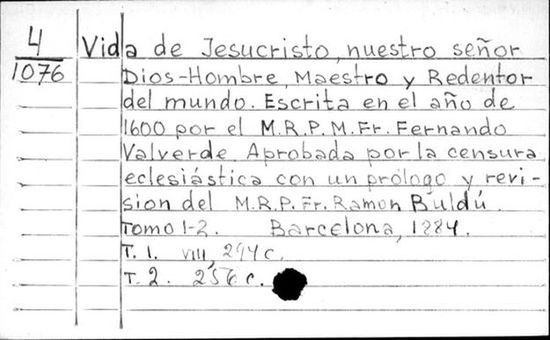 4
1076
Vida de Jesucristo, nuestro señor
Dios-Hombre, Maestro y Redentor
del mundo. Escrita en el año de
1600 por el M.R.P.M.Fr. Fernando
Valverde. Aprobada por la censura
eclesiástica con un prólogo y revi-
sion del M.R.P.Fr. Ramon Buldú.
Tomo 1-2. Barcelona, 1884.
T. 1. VIII, 294 c.
T. 2. 256 c.